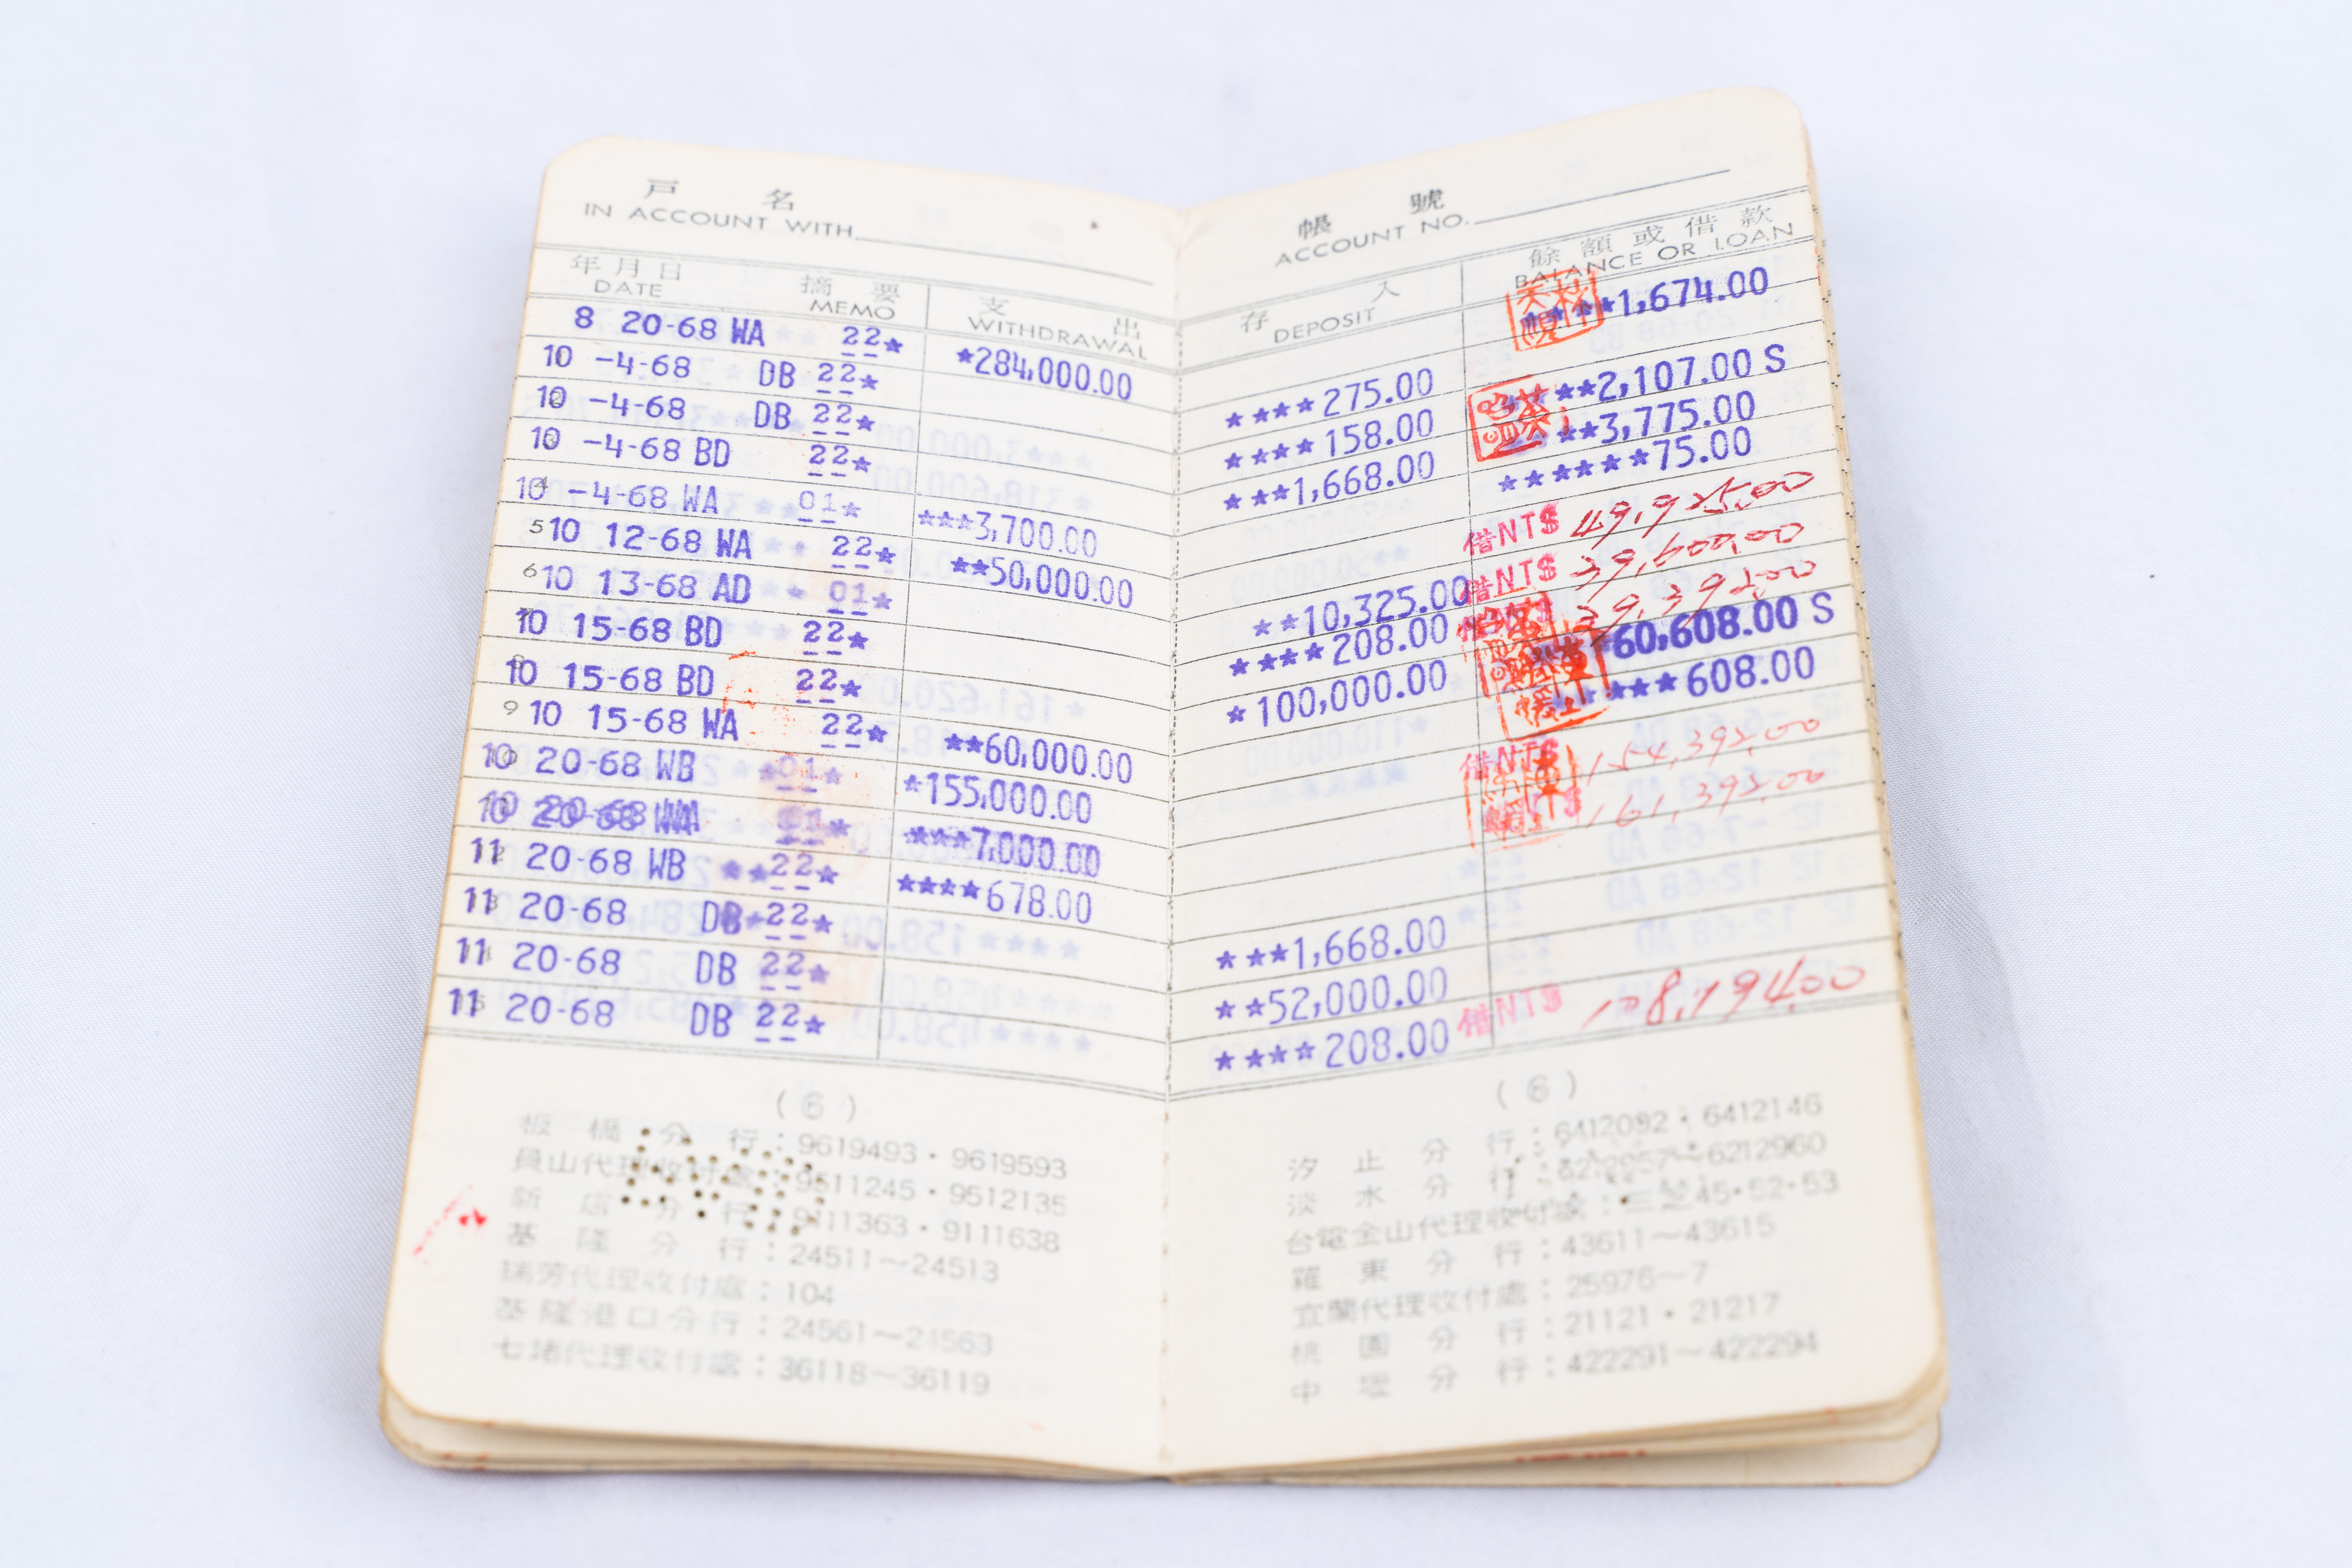 戶 名
IN ACCOUNT WITH
年月日 摘 要 支 出
DATE MEMO WITHDRAWAL
8 20-68 WA 22★ ★284,000.00
10 -4-68 DB 22★
10 -4-68 DB 22★
10 -4-68 BD 22★
10 -4-68 WA 01★ ★★★3,700.00
5 10 12-68 WA 22★ ★★50,000.00
6 10 13-68 AD 01★
10 15-68 BD 22★
10 15-68 BD 22★
9 10 15-68 WA 22★ ★★60,000.00
10 20-68 WB 01★ ★155,000.00
10 20-68 WA 01★ ★★★7,000.00
11 20-68 WB ★★22★ ★★★★678.00
11 20-68 DB★22★
11 20-68 DB 22★
11 20-68 DB 22★
(6)
板橋分行：9619493·9619593
員山代理收付處：9511245·9512135
新店分行：9111363·9111638
基隆分行：24511～24513
瑞芳代理收付處：104
基隆港口分行：24561～24563
七堵代理收付處：36118～36119
帳 號
ACCOUNT NO.
存 入 餘額或借款
DEPOSIT BALANCE OR LOAN
★★★★1,674.00
★★★★275.00
★★★★158.00 ★★2,107.00 S
★★★1,668.00 ★★3,775.00
★★★★★★75.00
借NT$ 49,925.00
★★10,325.00 借NT$ 39,600.00
★★★★208.00 39,392.00
★100,000.00 60,608.00 S
★★★608.00
借NT$ 154,392.00
161,392.00
★★★1,668.00
★★52,000.00
★★★★208.00 借NT$ 108,194.00
(6)
汐止分行：6412092·6412146
淡水分行：6212957～6212960
台電金山代理收付處：三芝45·52·53
羅東分行：43611～43615
宜蘭代理收付處：25976～7
桃園分行：21121·21217
中壢分行：422291～422294